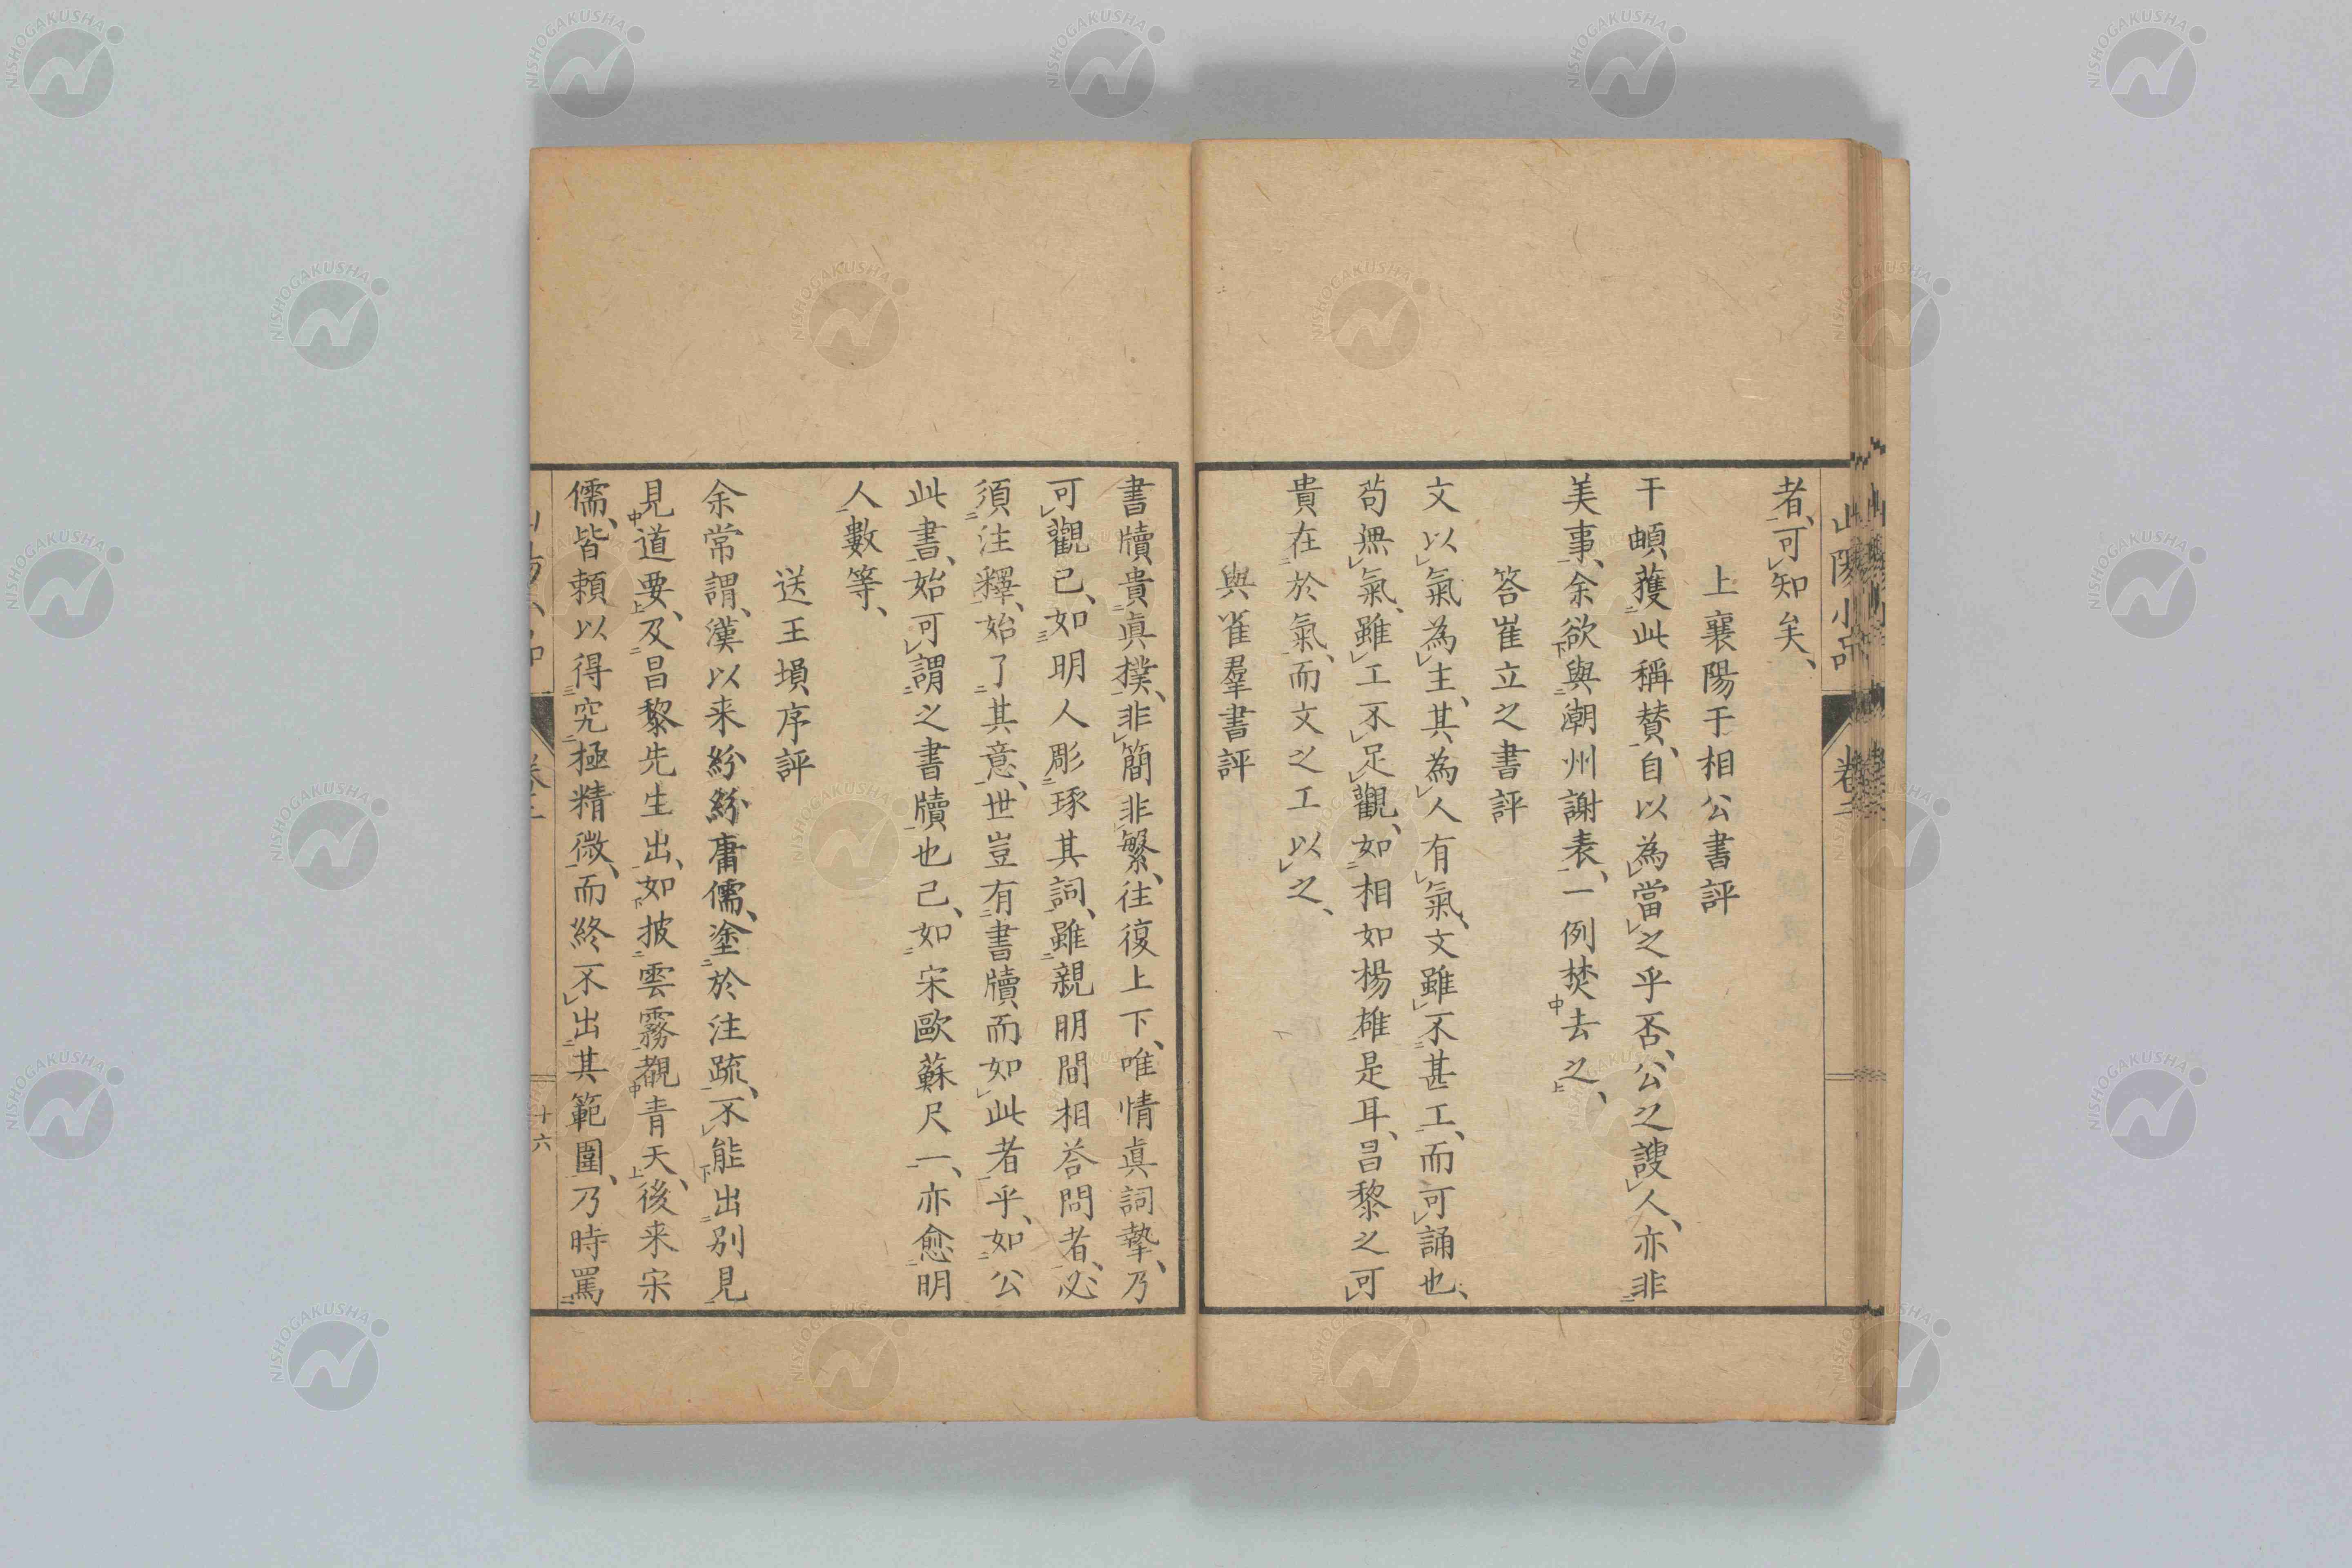 山陽小品
卷二
者、可知矣、
上襄陽于相公書評
干頔蒦此稱賛、自以為當之乎否、公之謏人、亦非
美事、余欲與潮州謝表、一例焚去之、
答崔立之書評
文以氣為主、其為人有氣、文雖不甚工、而可誦也、
苟無氣、雖工不足觀、如相如楊雄是耳、昌黎之可
貴在於氣、而文之工以之、
與崔羣書評
書牘貴真撲、非簡非繁、往復上下、唯情真詞摯、乃
可觀已、如明人彫琢其詞、雖親朋間相荅問者、必
須注釋、始了其意、世豈有書牘而如此者乎、如公
此書、始可謂之書牘也已、如宋歐蘇尺一、亦愈明
人數等、
送王塤序評
余常謂、漢以来紛紛庸儒、塗於注疏、不能出別見
見道要、及昌黎先生出、如披雲霧覩青天、後来宋
儒、皆頼以得究極精微、而終不出其範圍、乃時罵
十六
NISHOGAKUSHA